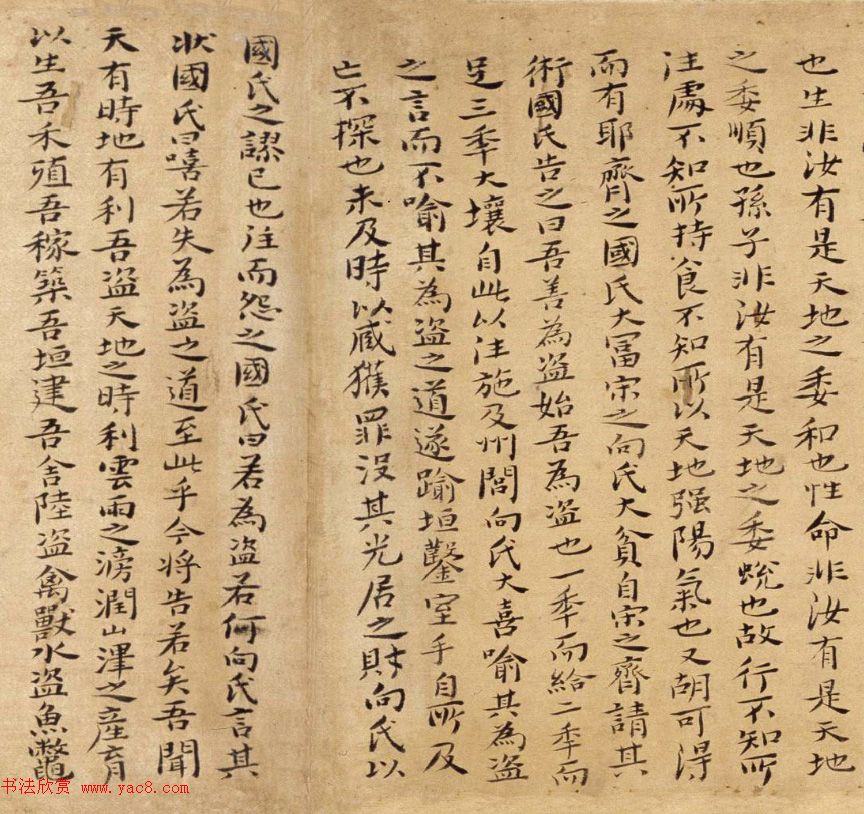 也生非汝有是天地之委和也性命非汝有是天地
之委順也孫子非汝有是天地之委蛻也故行不知所
往處不知所持食不知所以天地强陽氣也又胡可得
而有耶齊之國氏大冨宋之向氏大貧自宋之齊請其
術國氏告之曰吾善為盗始吾為盗也一秊而給二秊而
足三秊大壤自此以往施及州閭向氏大喜喻其為盗
之言而不喻其為盗之道遂踰垣鑿室手自所及
亡不探也未及時以臧獲罪沒其先居之財向氏以
國氏之謬已也往而怨之國氏曰若為盗若何向氏言其
狀國氏曰嘻若失為盗之道至此乎今将告若矣吾聞
天有時地有利吾盗天地之時利雲雨之滂潤山澤之產育
以生吾禾殖吾稼築吾垣建吾舍陸盗禽獸水盗魚鼈
书法欣赏 www.yac8.com